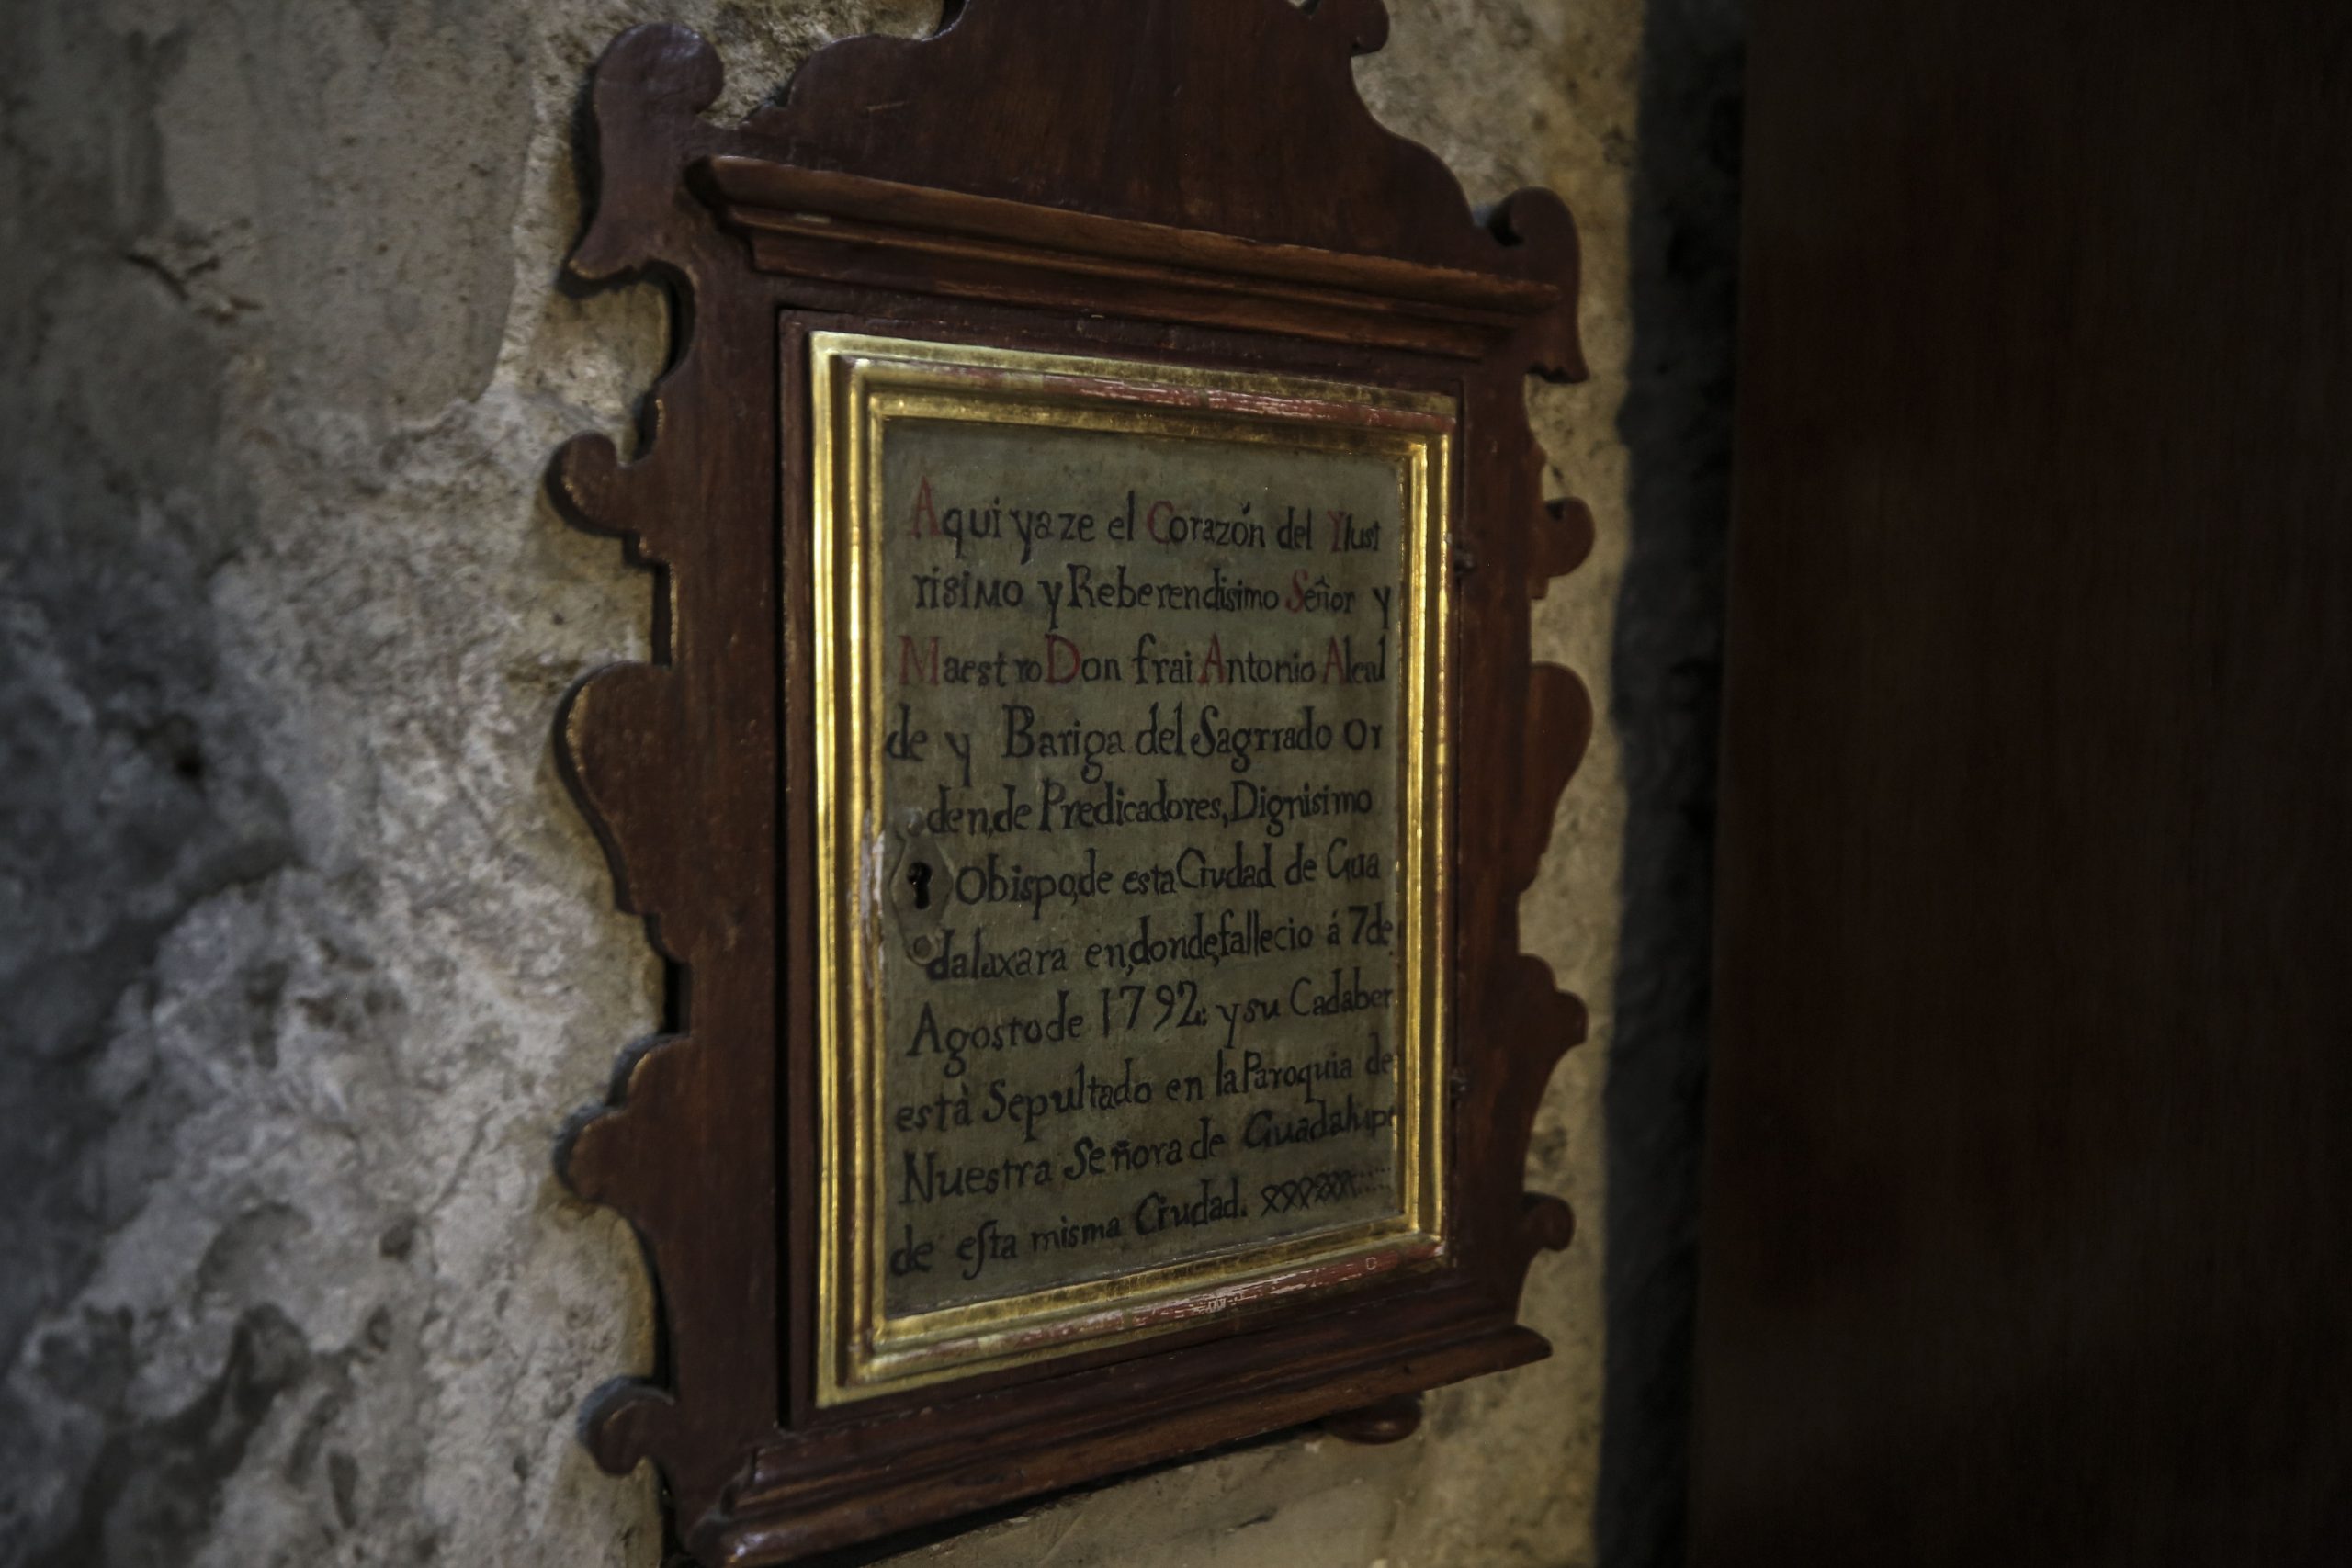 Aqui yaze el Corazón del Ylust
risimo y Reberendisimo Señor y
Maestro Don frai Antonio Alcal
de y Bariga del Sagrrado Or
den,de Predicadores,Dignisimo
Obispo,de esta Ciudad de Gua
dalaxara en,donde,fallecio á 7 de
Agosto de 1792: y su Cadaber
està Sepultado en la Paroquia de
Nuestra Señora de Guadalupe
de eſta misma Ciudad.